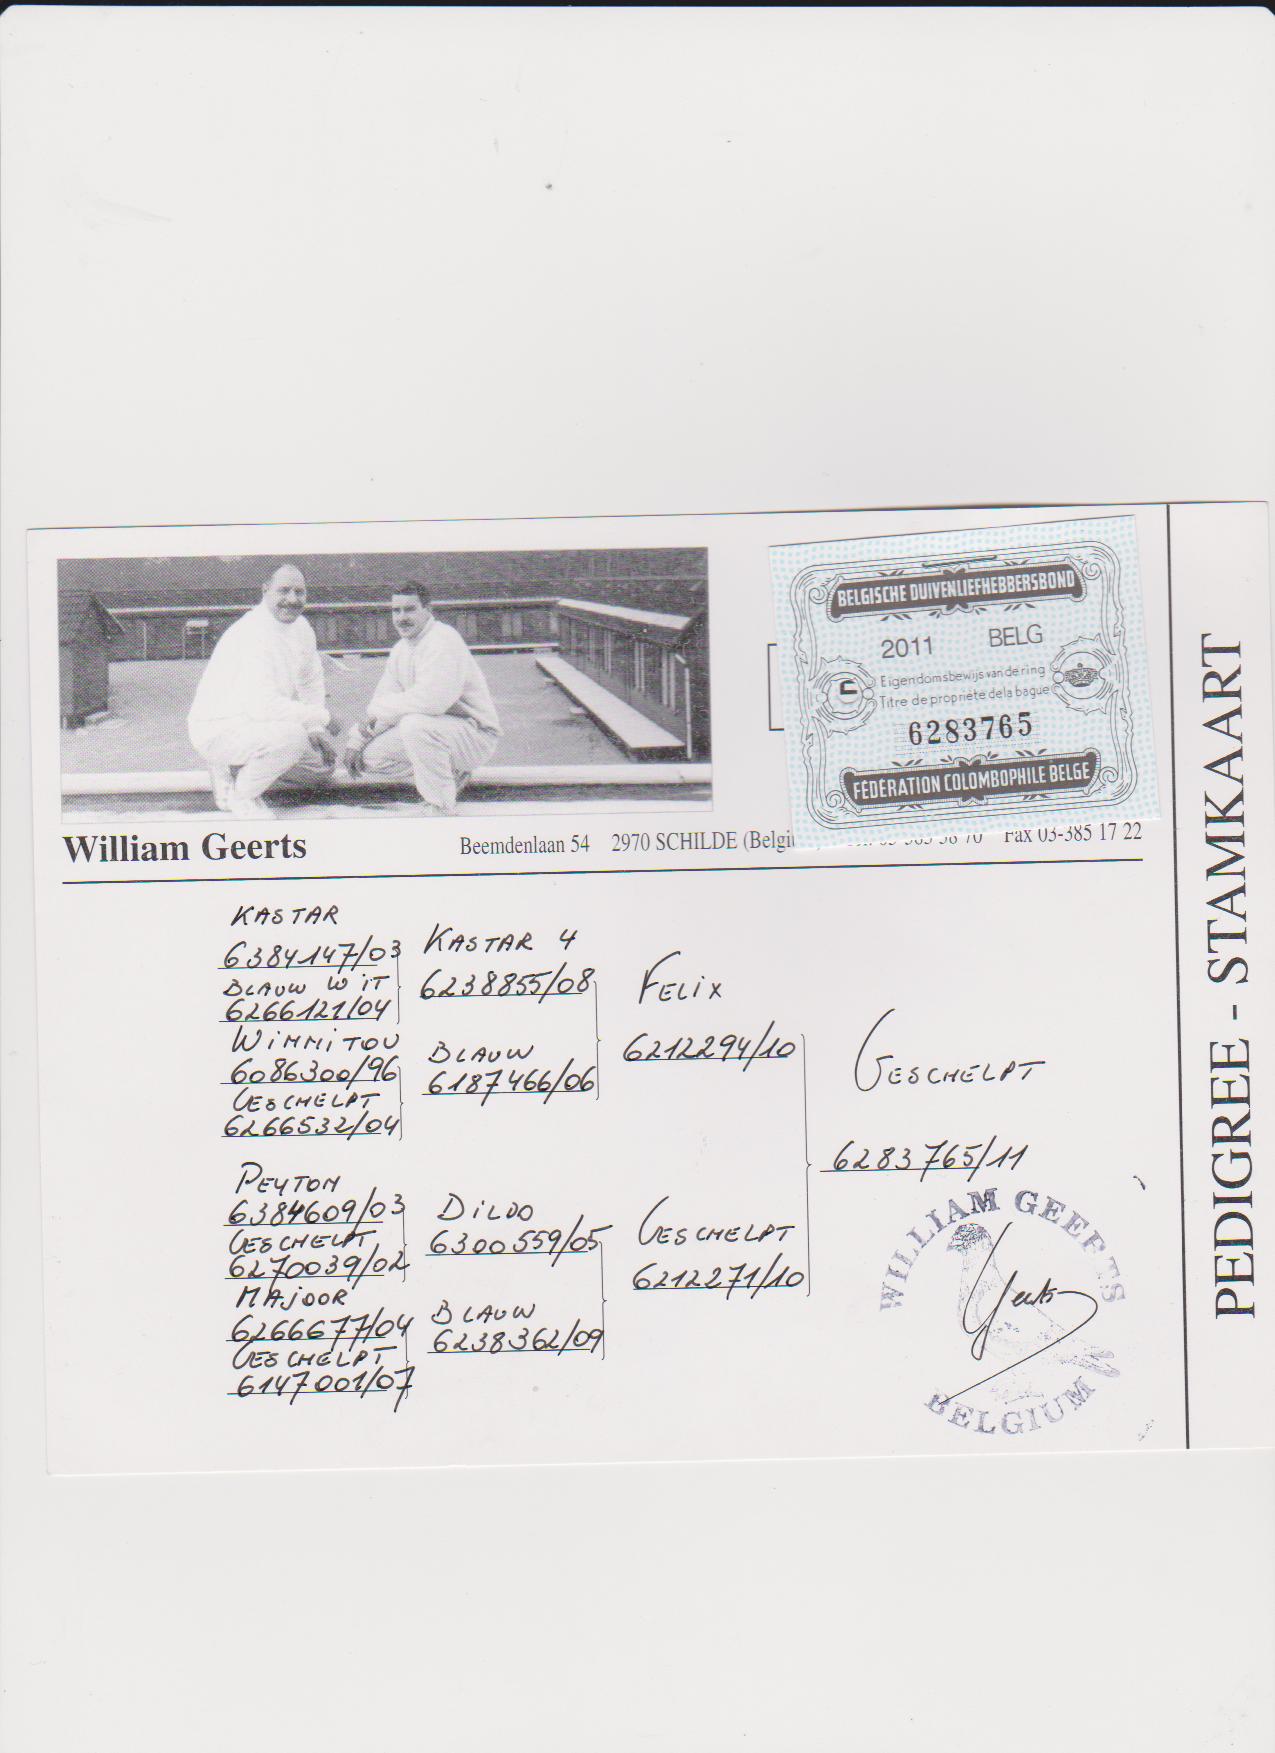 BELGISCHE DUIVENLIEFHEBBERSBOND
2011 BELG
Eigendomsbewijs van de ring
Titre de propriété de la bague
6283765
FÉDÉRATION COLOMBOPHILE BELGE
William Geerts
Beemdenlaan 54 2970 SCHILDE Fax 03-385 17 22
PEDIGREE - STAMKAART
KASTAR
6384147/03
BLAUW WIT
6266121/04
WINNITOU
6086300/96
GESCHELPT
6266532/04
PEYTON
6384609/03
GESCHELPT
6270039/02
MAJOOR
6266677/04
GESCHELPT
6147001/07
KASTAR 4
6238855/08
BLAUW
6187466/06
DILDO
6300559/05
BLAUW
6238362/09
FELIX
6212294/10
GESCHELPT
6212271/10
GESCHELPT
6283765/11
WILLIAM GEERTS
BELGIUM